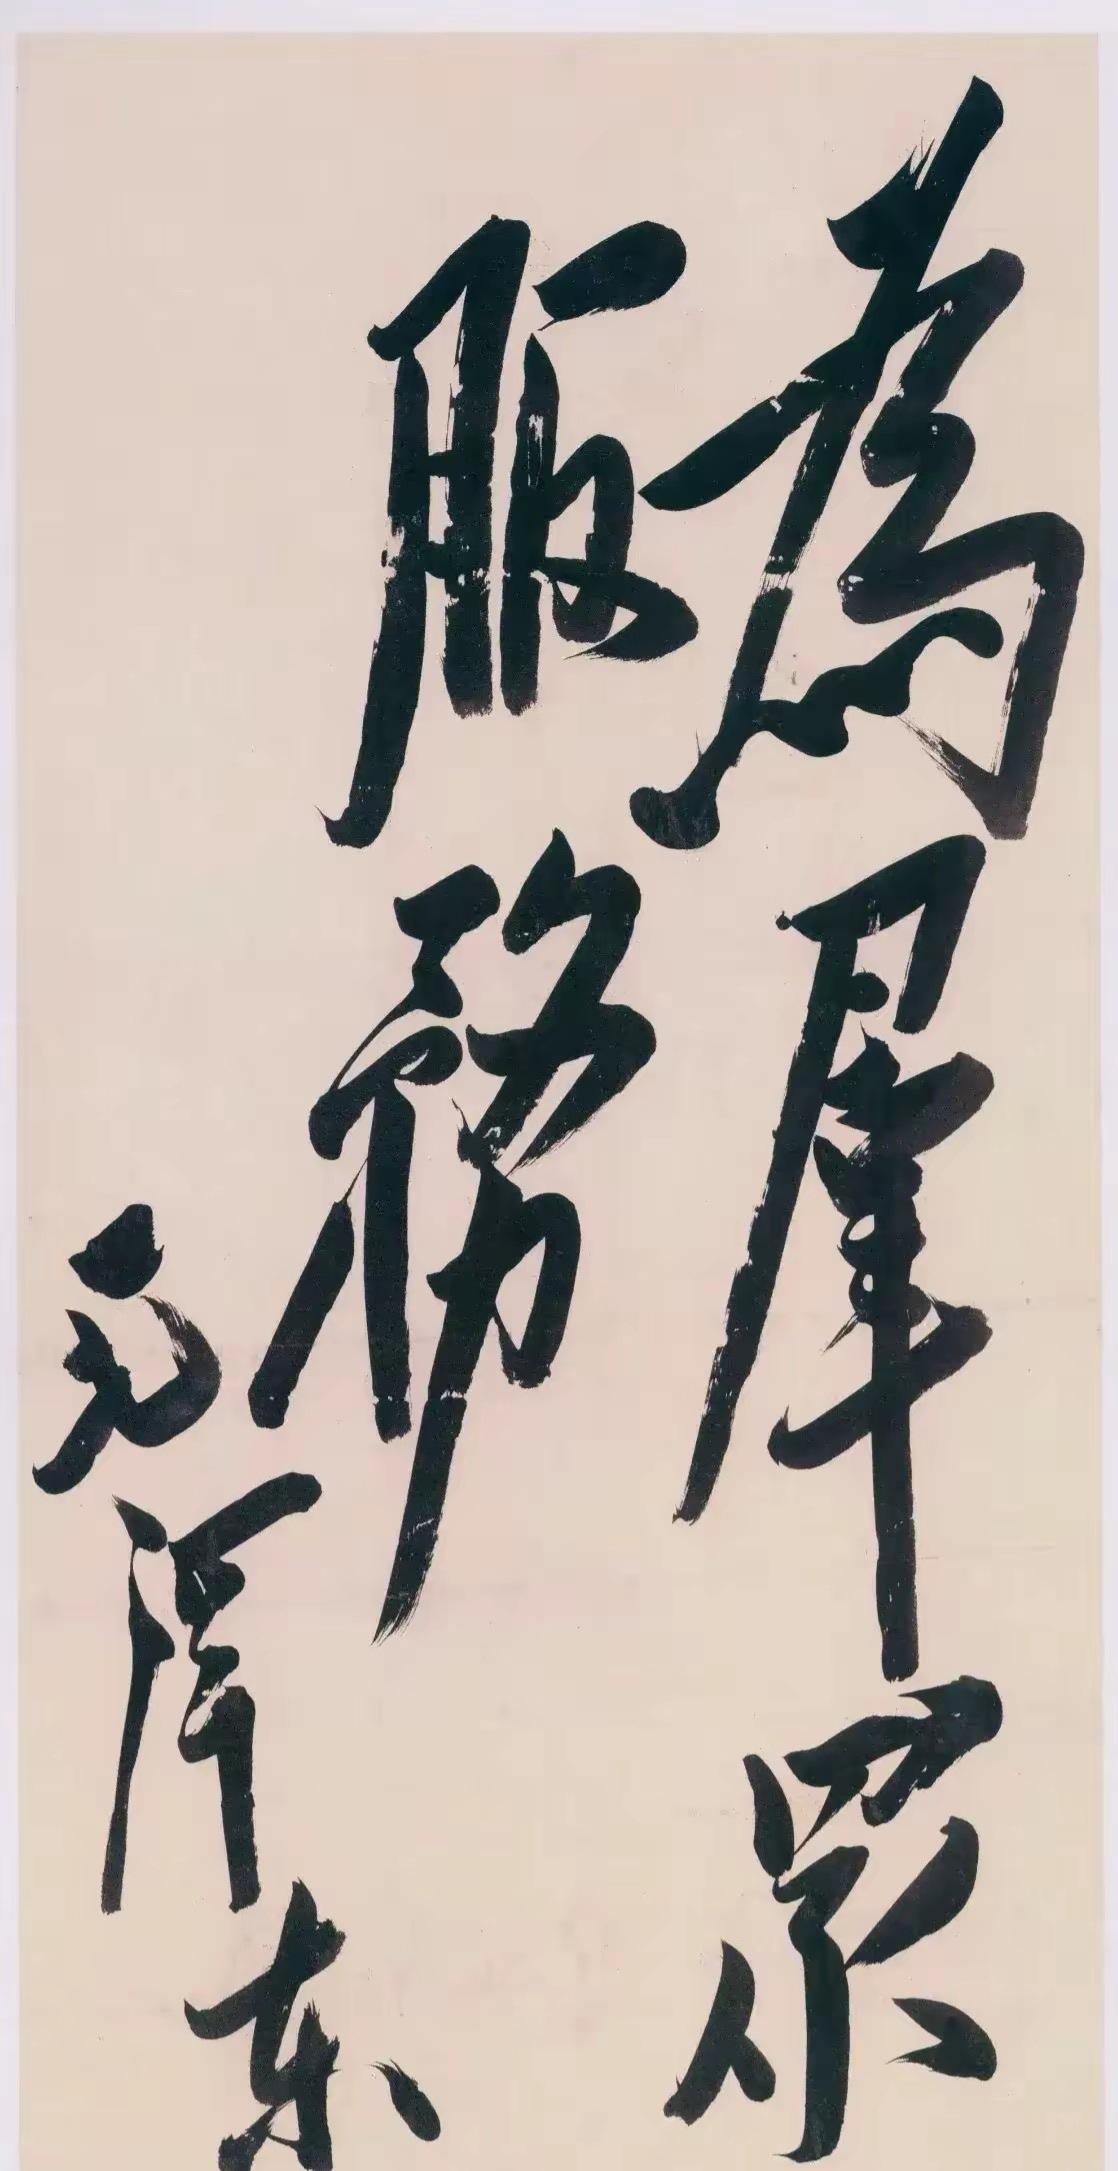 为羣眾
服務
毛澤东